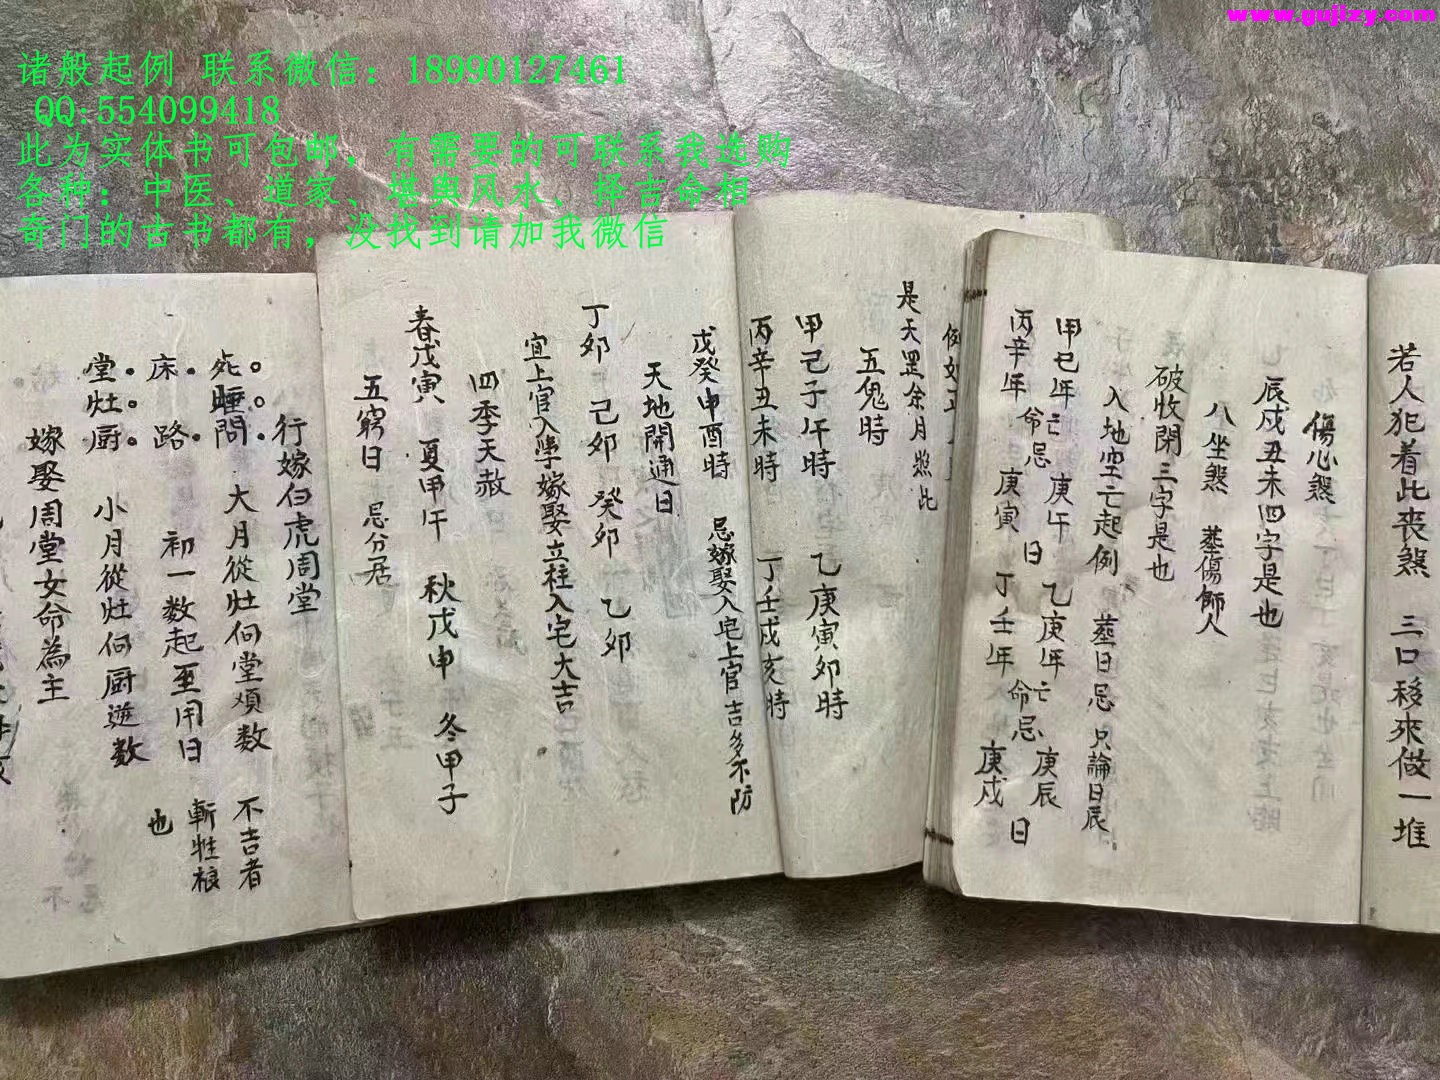 www.gujizy.com
诸般起例 联系微信：18990127461
QQ:554099418
此为实体书可包邮，有需要的可联系我选购
各种：中医、道家、堪舆风水、择吉命相
奇门的古书都有，没找到请加我微信
若人犯着此丧煞 三口移來做一堆
傷心煞
辰戌丑未四字是也
八坐煞 葬傷師人
破收閉三字是也
入地空亡起例 葬日忌 只論日辰
甲己年亡命忌庚午日 乙庚年亡命忌庚辰日
丙辛年 庚寅 丁壬年 庚戌
是天罡余月照此
五鬼時
甲己子午時 乙庚寅卯時
丙辛丑未時 丁壬戌亥時
戊癸申酉時 忌嫁娶入宅上官吉多不防
天地開通日
丁卯 己卯 癸卯 乙卯
宜上官入學嫁娶立柱入宅大吉
四季天赦
春戊寅 夏甲午 秋戊申 冬甲子
五窮日 忌分居
行嫁白虎周堂
死 睡 問 大月從灶向堂順数 不吉者
床 路 初一数起至用日
堂 灶 厨 小月從灶向厨逆数 也
嫁娶周堂女命為主